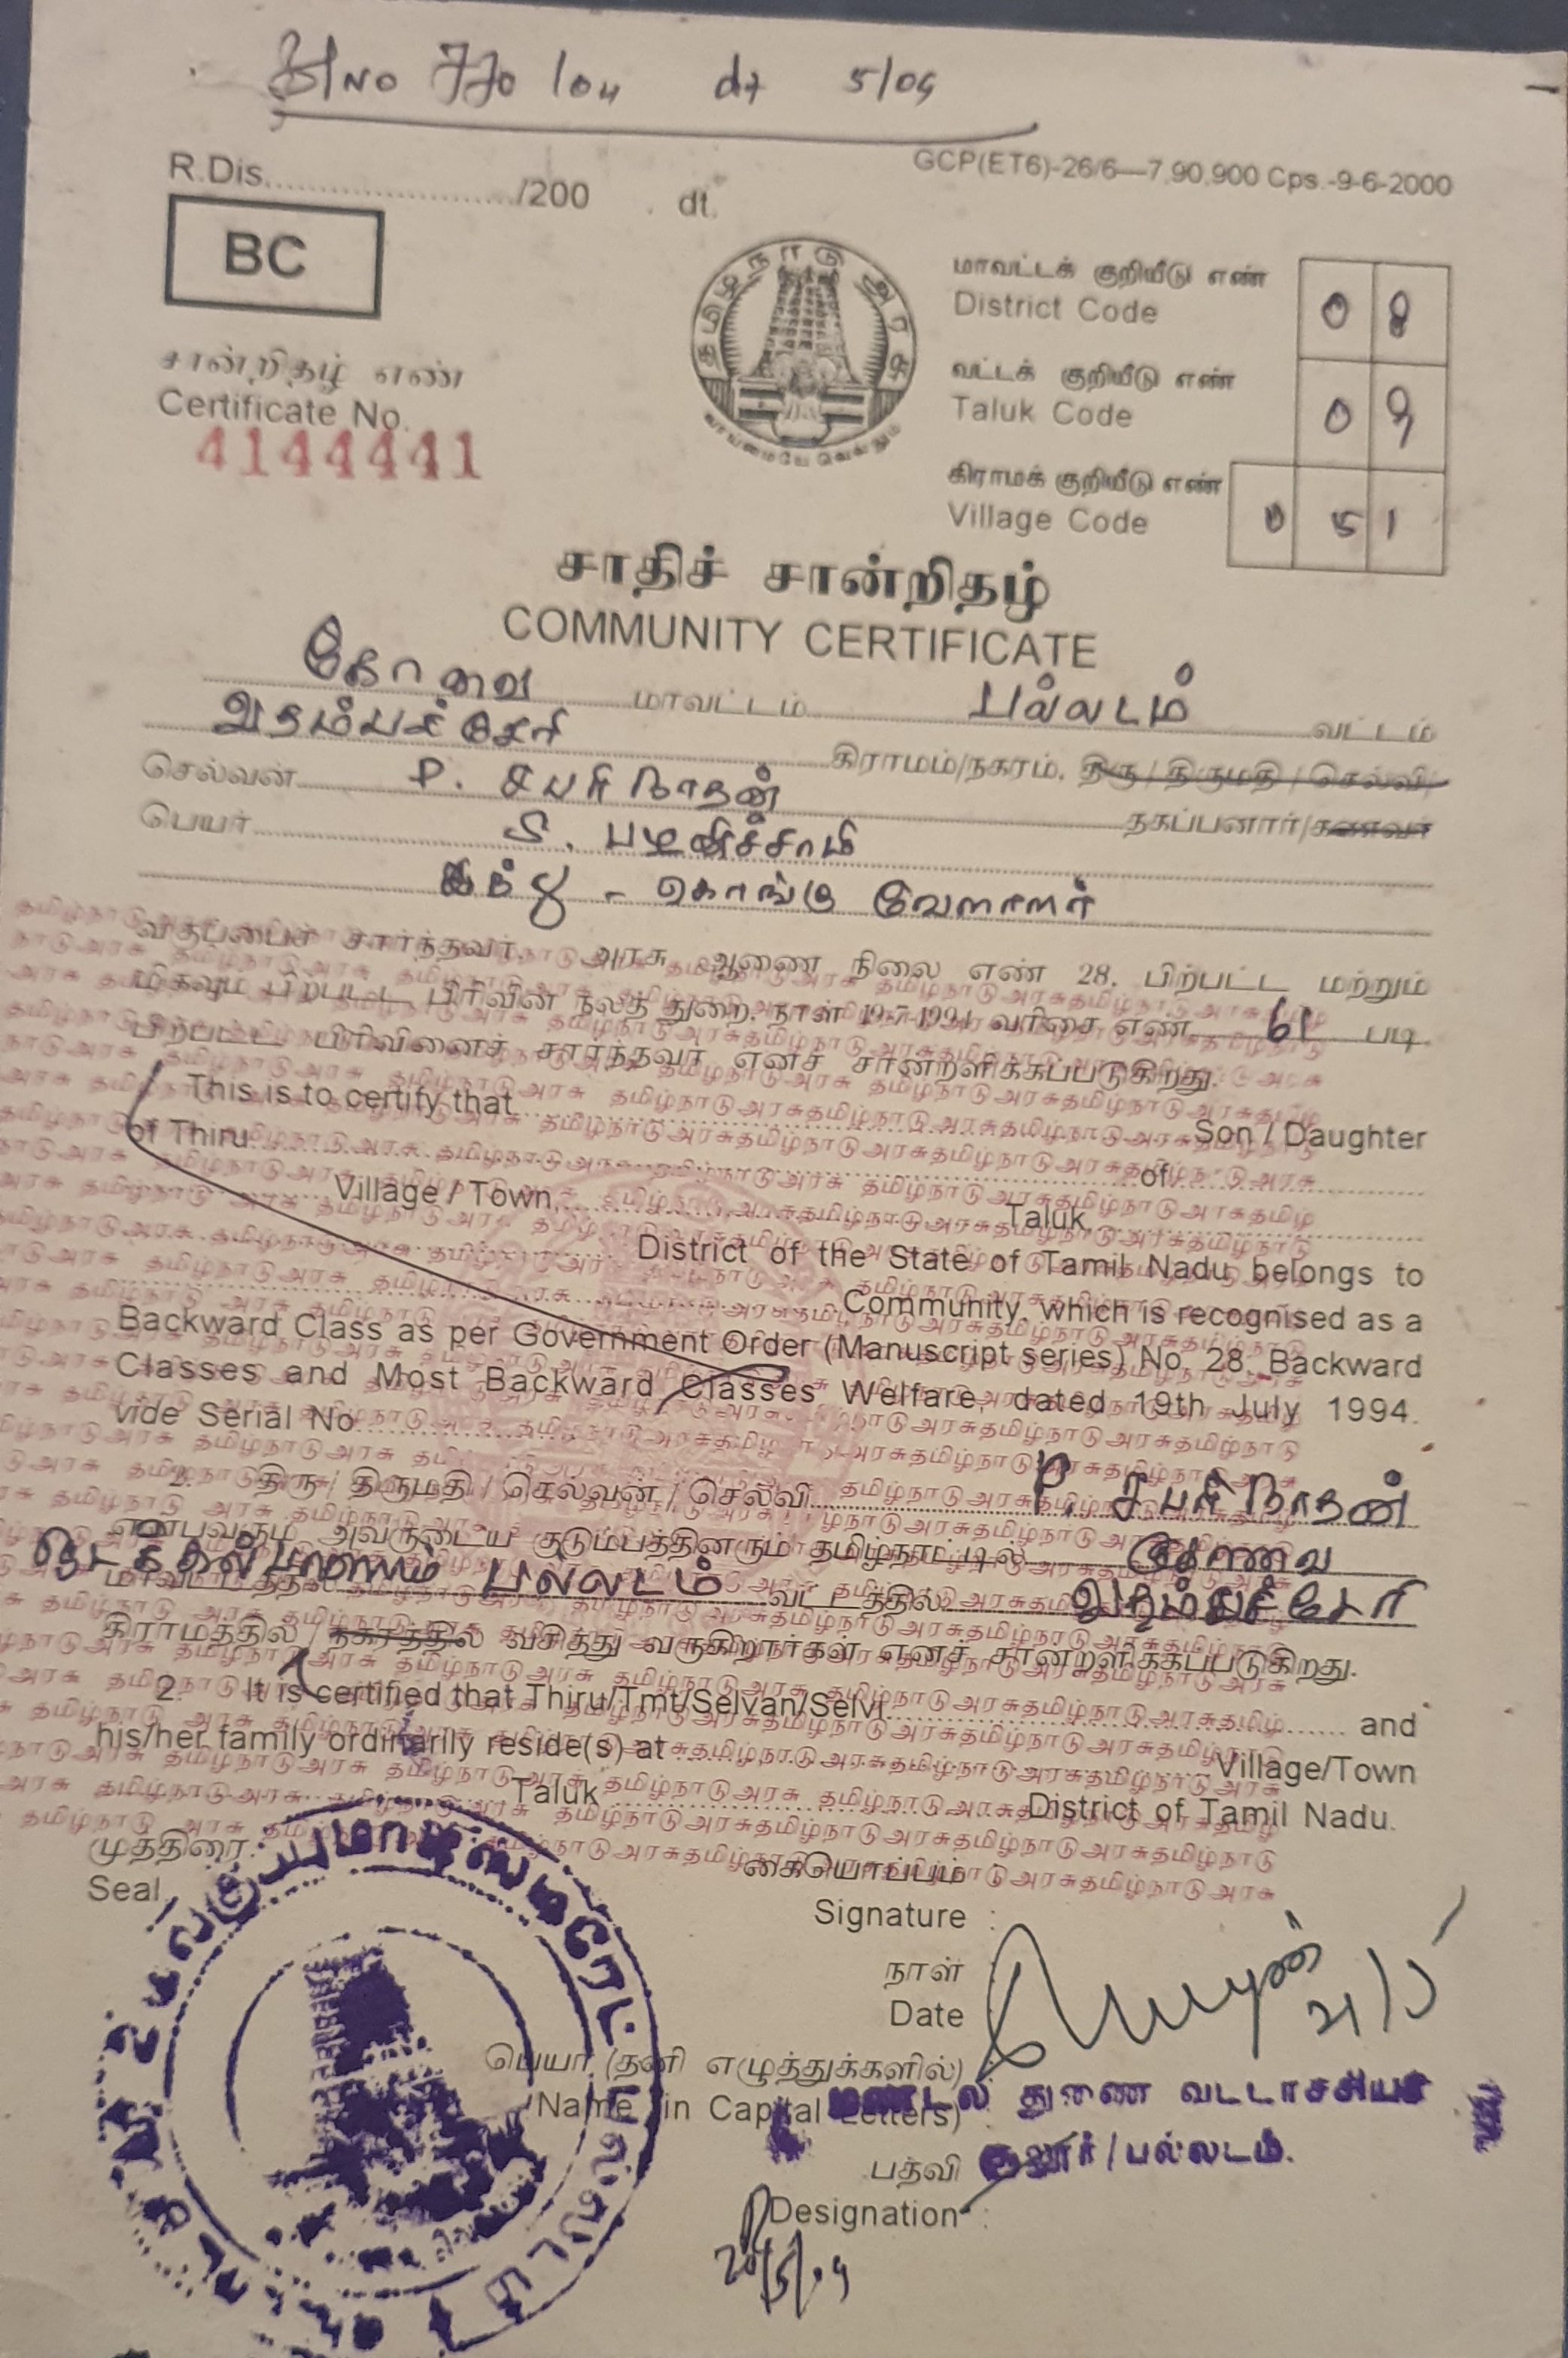 770/04 dt 5/04
R.Dis............................/200 dt.
GCP(ET6)-26/6—7,90,900 Cps.-9-6-2000
BC
தமிழ்நாடு அரசு
வாய்மையே வெல்லும்
மாவட்டக் குறியீடு எண்
District Code 08
வட்டக் குறியீடு எண்
Taluk Code 09
கிராமக் குறியீடு எண்
Village Code 051
சான்றிதழ் எண்
Certificate No.
4144441
சாதிச் சான்றிதழ்
COMMUNITY CERTIFICATE
கோவை மாவட்டம் பல்லடம் வட்டம்
வதம்பச்சேரி கிராமம்/நகரம், திரு / திருமதி / செல்வி/
செல்வன் P. சபரிநாதன் தகப்பனார்/கணவர்
பெயர் S. பழனிச்சாமி
இந்து - கொங்கு வேளாளர்
வகுப்பைச் சார்ந்தவர். அரசு ஆணை நிலை எண் 28. பிற்பட்ட மற்றும்
மிகவும் பிற்பட்ட பிரிவின் நலத் துறை, நாள் 19-7-1994 வரிசை எண் 61 படி
பிற்பட்ட பிரிவினைச் சார்ந்தவர் எனச் சான்றளிக்கப்படுகிறது.
This is to certify that Son / Daughter
of Thiru of
Village / Town, Taluk,
District of the State of Tamil Nadu belongs to
Community, which is recognised as a
Backward Class as per Government Order (Manuscript series) No. 28. Backward
Classes and Most Backward Classes Welfare, dated 19th July 1994.
vide Serial No.
2. திரு / திருமதி / செல்வன் / செல்வி P. சபரிநாதன்
என்பவரும் அவருடைய குடும்பத்தினரும் தமிழ்நாட்டில் கோவை
மாவட்டத்தில் பல்லடம் வட்டத்தில் வதம்பச்சேரி
கிராமத்தில் / நகரத்தில் வசித்து வருகிறார்கள் எனச் சான்றளிக்கப்படுகிறது.
2. It is certified that Thiru/Tmt/Selvan/Selvi and
his/her family ordinarily reside(s) at Village/Town
Taluk District of Tamil Nadu.
முத்திரை:
Seal
கையொப்பம்
Signature :
நாள்
Date 21/5
பெயர் (தனி எழுத்துக்களில்) :
Name (in Capital Letters)
மண்டல துணை வட்டாசியர்
பதவி
சூலூர்/பல்லடம்.
Designation :
20/5/04